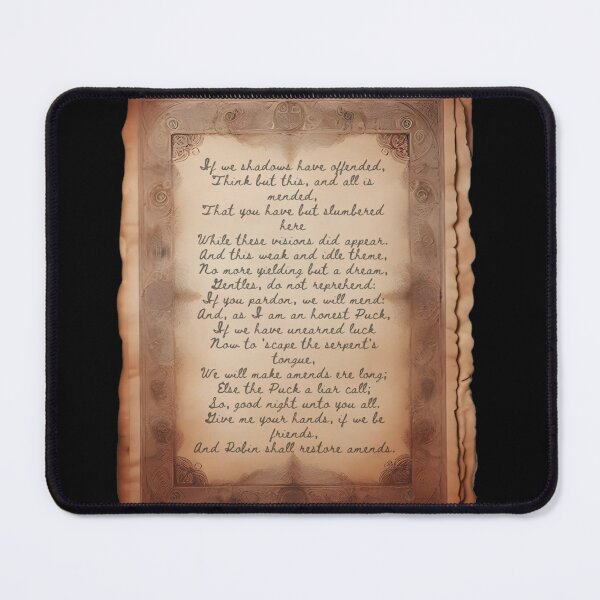 If we shadows have offended,
Think but this, and all is
mended,
That you have but slumbered
here
While these visions did appear.
And this weak and idle theme,
No more yielding but a dream,
Gentles, do not reprehend:
If you pardon, we will mend:
And, as I am an honest Puck,
If we have unearned luck
Now to 'scape the serpent's
tongue,
We will make amends ere long;
Else the Puck a liar call;
So, good night unto you all.
Give me your hands, if we be
friends,
And Robin shall restore amends.